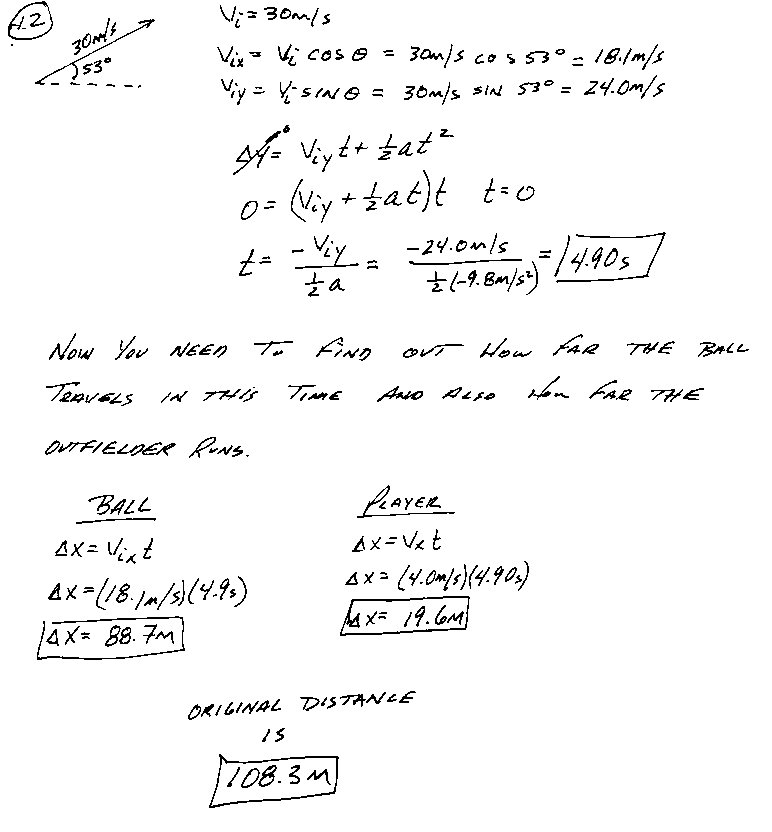 12
30m/s
53°
Vi = 30m/s
Vix = Vi cos θ = 30m/s cos 53° = 18.1m/s
Viy = Vi sin θ = 30m/s sin 53° = 24.0m/s
ΔY⁰ = Viy t + ½at²
0 = (Viy + ½at)t t=0
t = -Viy / ½a = -24.0m/s / ½(-9.8m/s²) = 4.90s
NOW YOU NEED TO FIND OUT HOW FAR THE BALL
TRAVELS IN THIS TIME AND ALSO HOW FAR THE
OUTFIELDER RUNS.
BALL
ΔX = Vix t
ΔX = (18.1m/s)(4.9s)
ΔX = 88.7M
PLAYER
ΔX = Vx t
ΔX = (4.0m/s)(4.90s)
ΔX = 19.6M
ORIGINAL DISTANCE
IS
108.3M